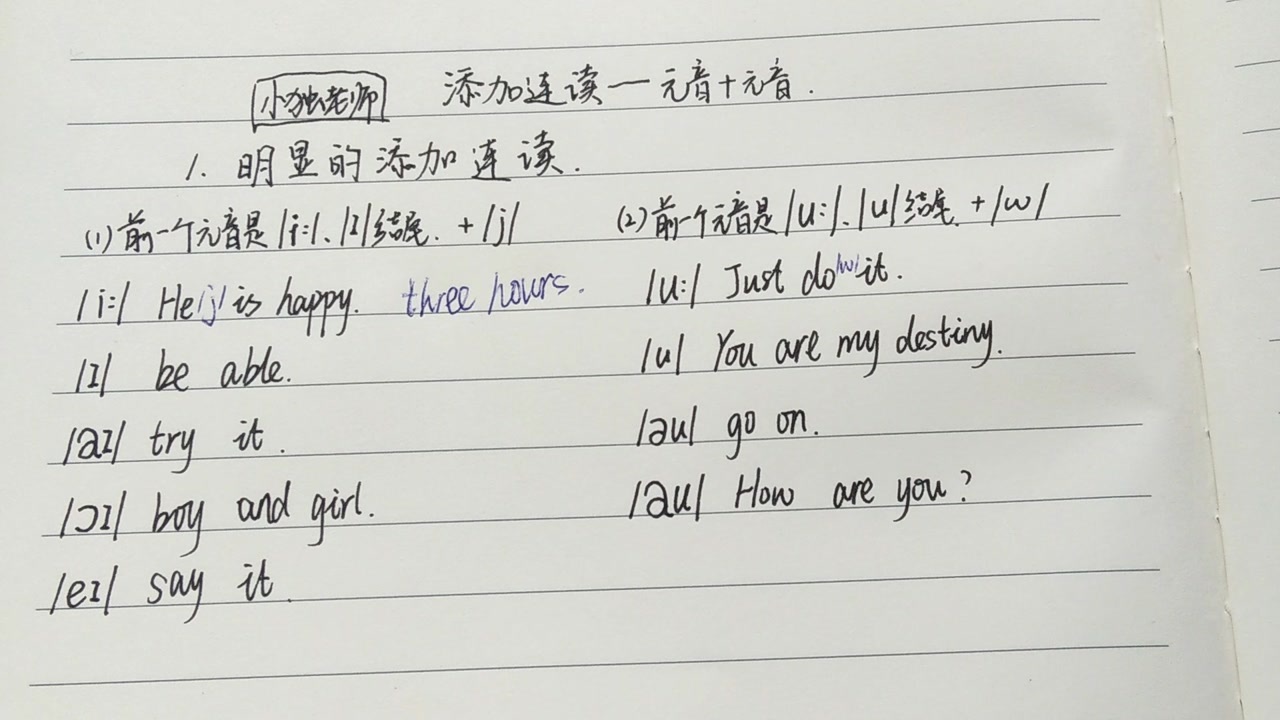 小独老师 添加连读一元音+元音.
1. 明显的添加连读.
(1)前一个元音是/i:/、/I/结尾. +/j/
/i:/ He/j/is happy. three hours.
/I/ be able.
/aI/ try it.
/ɔI/ boy and girl.
/eI/ say it.
(2)前一个元音是/u:/、/u/结尾. +/w/
/u:/ Just do/w/it.
/u/ You are my destiny.
/əu/ go on.
/au/ How are you?